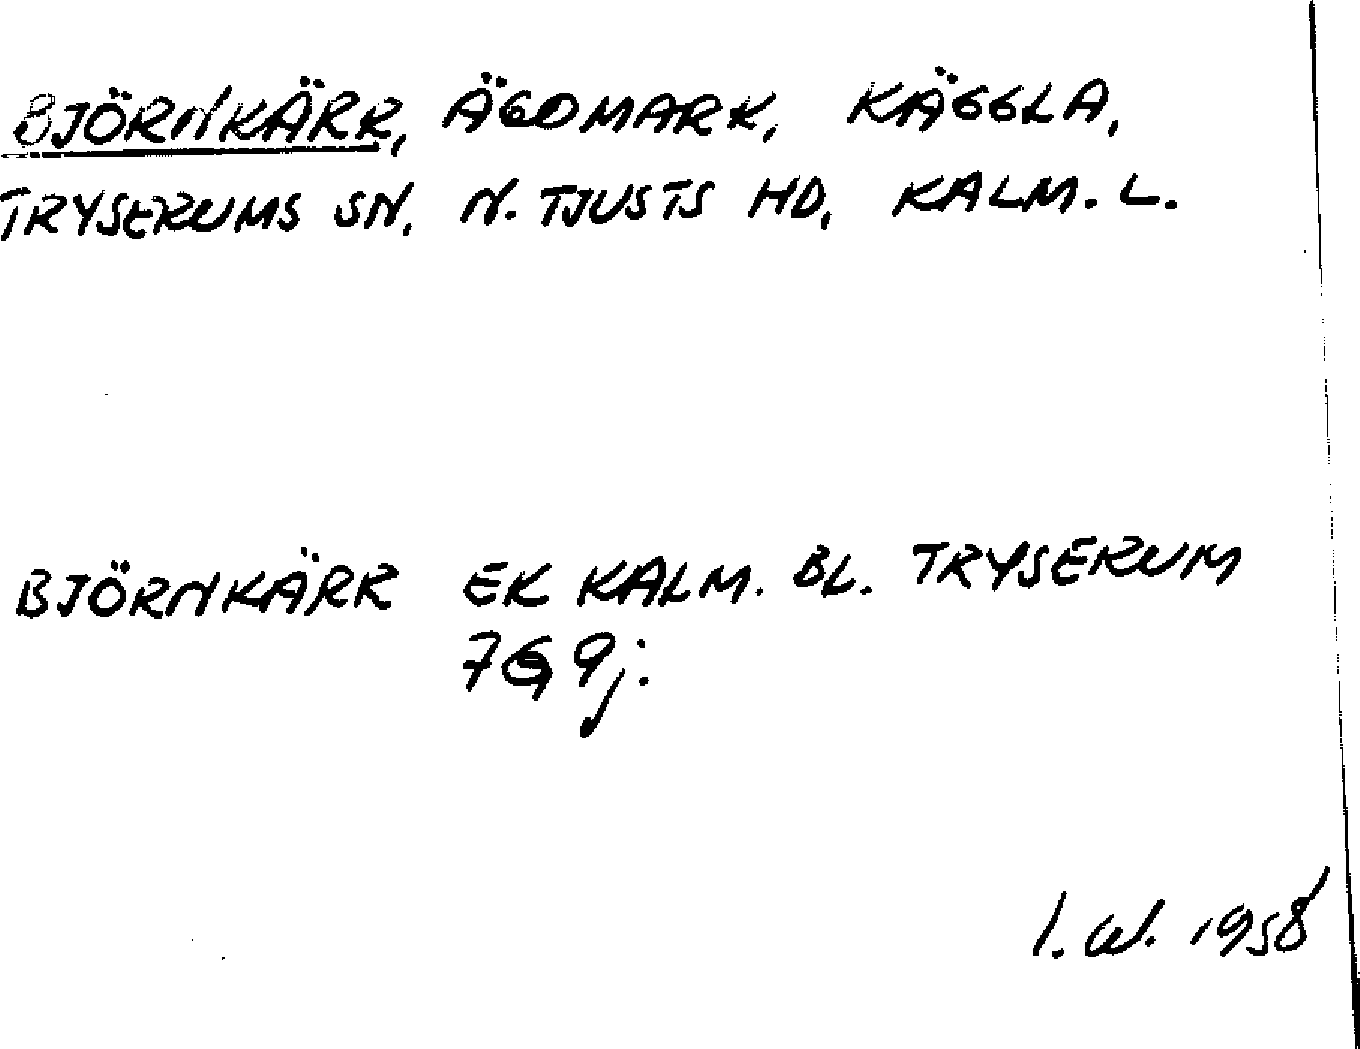 BJÖRNKÄRR, ÄGOMARK, KÄGGLA,
TRYSERUMS SN. N. TJUSTS HD, KALM. L.
BJÖRNKÄRR EK KALM. BL. TRYSERUM
769j.
1958